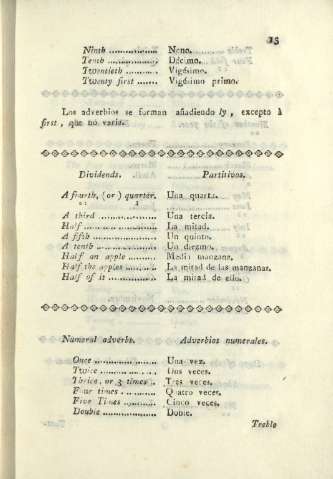 15
Ninth ............... Nono.
Tenth ............... Décimo.
Twentieth .......... Vigésimo.
Twenty first ...... Vigésimo primo.
Los adverbios se forman añadiendo ly , excepto à
first , que no varia.
Dividends. Partitivos.
A fourth, (or) quarter. Una quarta.
A third ................. Una tercia.
Half ..................... La mitad.
A fifth .................. Un quinto.
A tenth ................. Un diezmo.
Half an apple ........ Media manzana.
Half the apples ....... La mitad de las manzanas.
Half of it .............. La mitad de ello.
Numeral adverbs. Adverbios numerales.
Once ................... Una vez.
Twice .................. Dos veces.
Thrice, or 3 times .. Tres veces.
Four times ........... Quatro veces.
Five Times .......... Cinco veces.
Double ................ Doble.
Treble